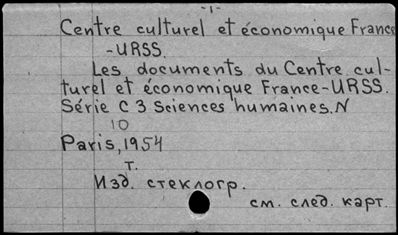 -1-
Centre culturel et économique France
-URSS.
Les documents du Centre cul-
turel et économique France-URSS.
Série C 3 Sciences humaines. N
10
Paris, 1954
т.
Изд. стеклогр.
см. след. карт.